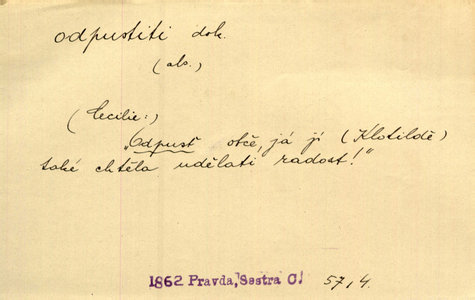 odpustiti dok.
(abs.)
(Cecilie:)
„Odpusť otče, já jí (Klotildě)
také chtěla udělati radost!"
1862 Pravda, Sestra C! 57,4.